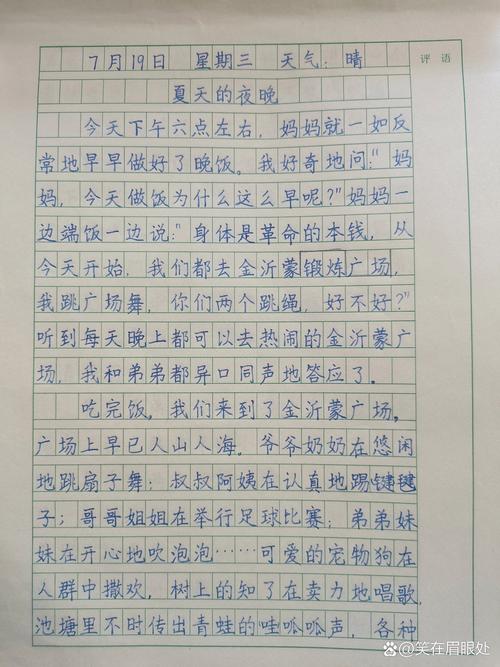 7月19日 星期三 天气：晴
评语
夏天的夜晚
今天下午六点左右，妈妈就一如反
常地早早做好了晚饭。我好奇地问："妈
妈，今天做饭为什么这么早呢?"妈妈一
边端饭一边说："身体是革命的本钱，从
今天开始，我们都去金沂蒙锻炼广场，
我跳广场舞，你们两个跳绳，好不好?"
听到每天晚上都可以去热闹的金沂蒙广
场，我和弟弟都异口同声地答应了。
吃完饭，我们来到了金沂蒙广场。
广场上早已人山人海。爷爷奶奶在悠闲
地跳扇子舞；叔叔阿姨在认真地踢毽
子；哥哥姐姐在举行足球比赛；弟弟妹
妹在开心地吹泡泡……可爱的宠物狗在
人群中撒欢，树上的知了在卖力地唱歌，
池塘里不时传出青蛙的哇呱呱声，各种
头条@笑在眉眼处